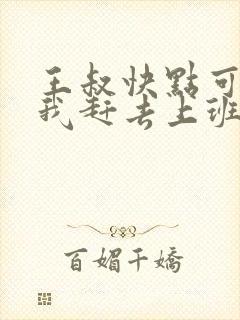 王叔快點可
我赶去上班
百媚千嬌